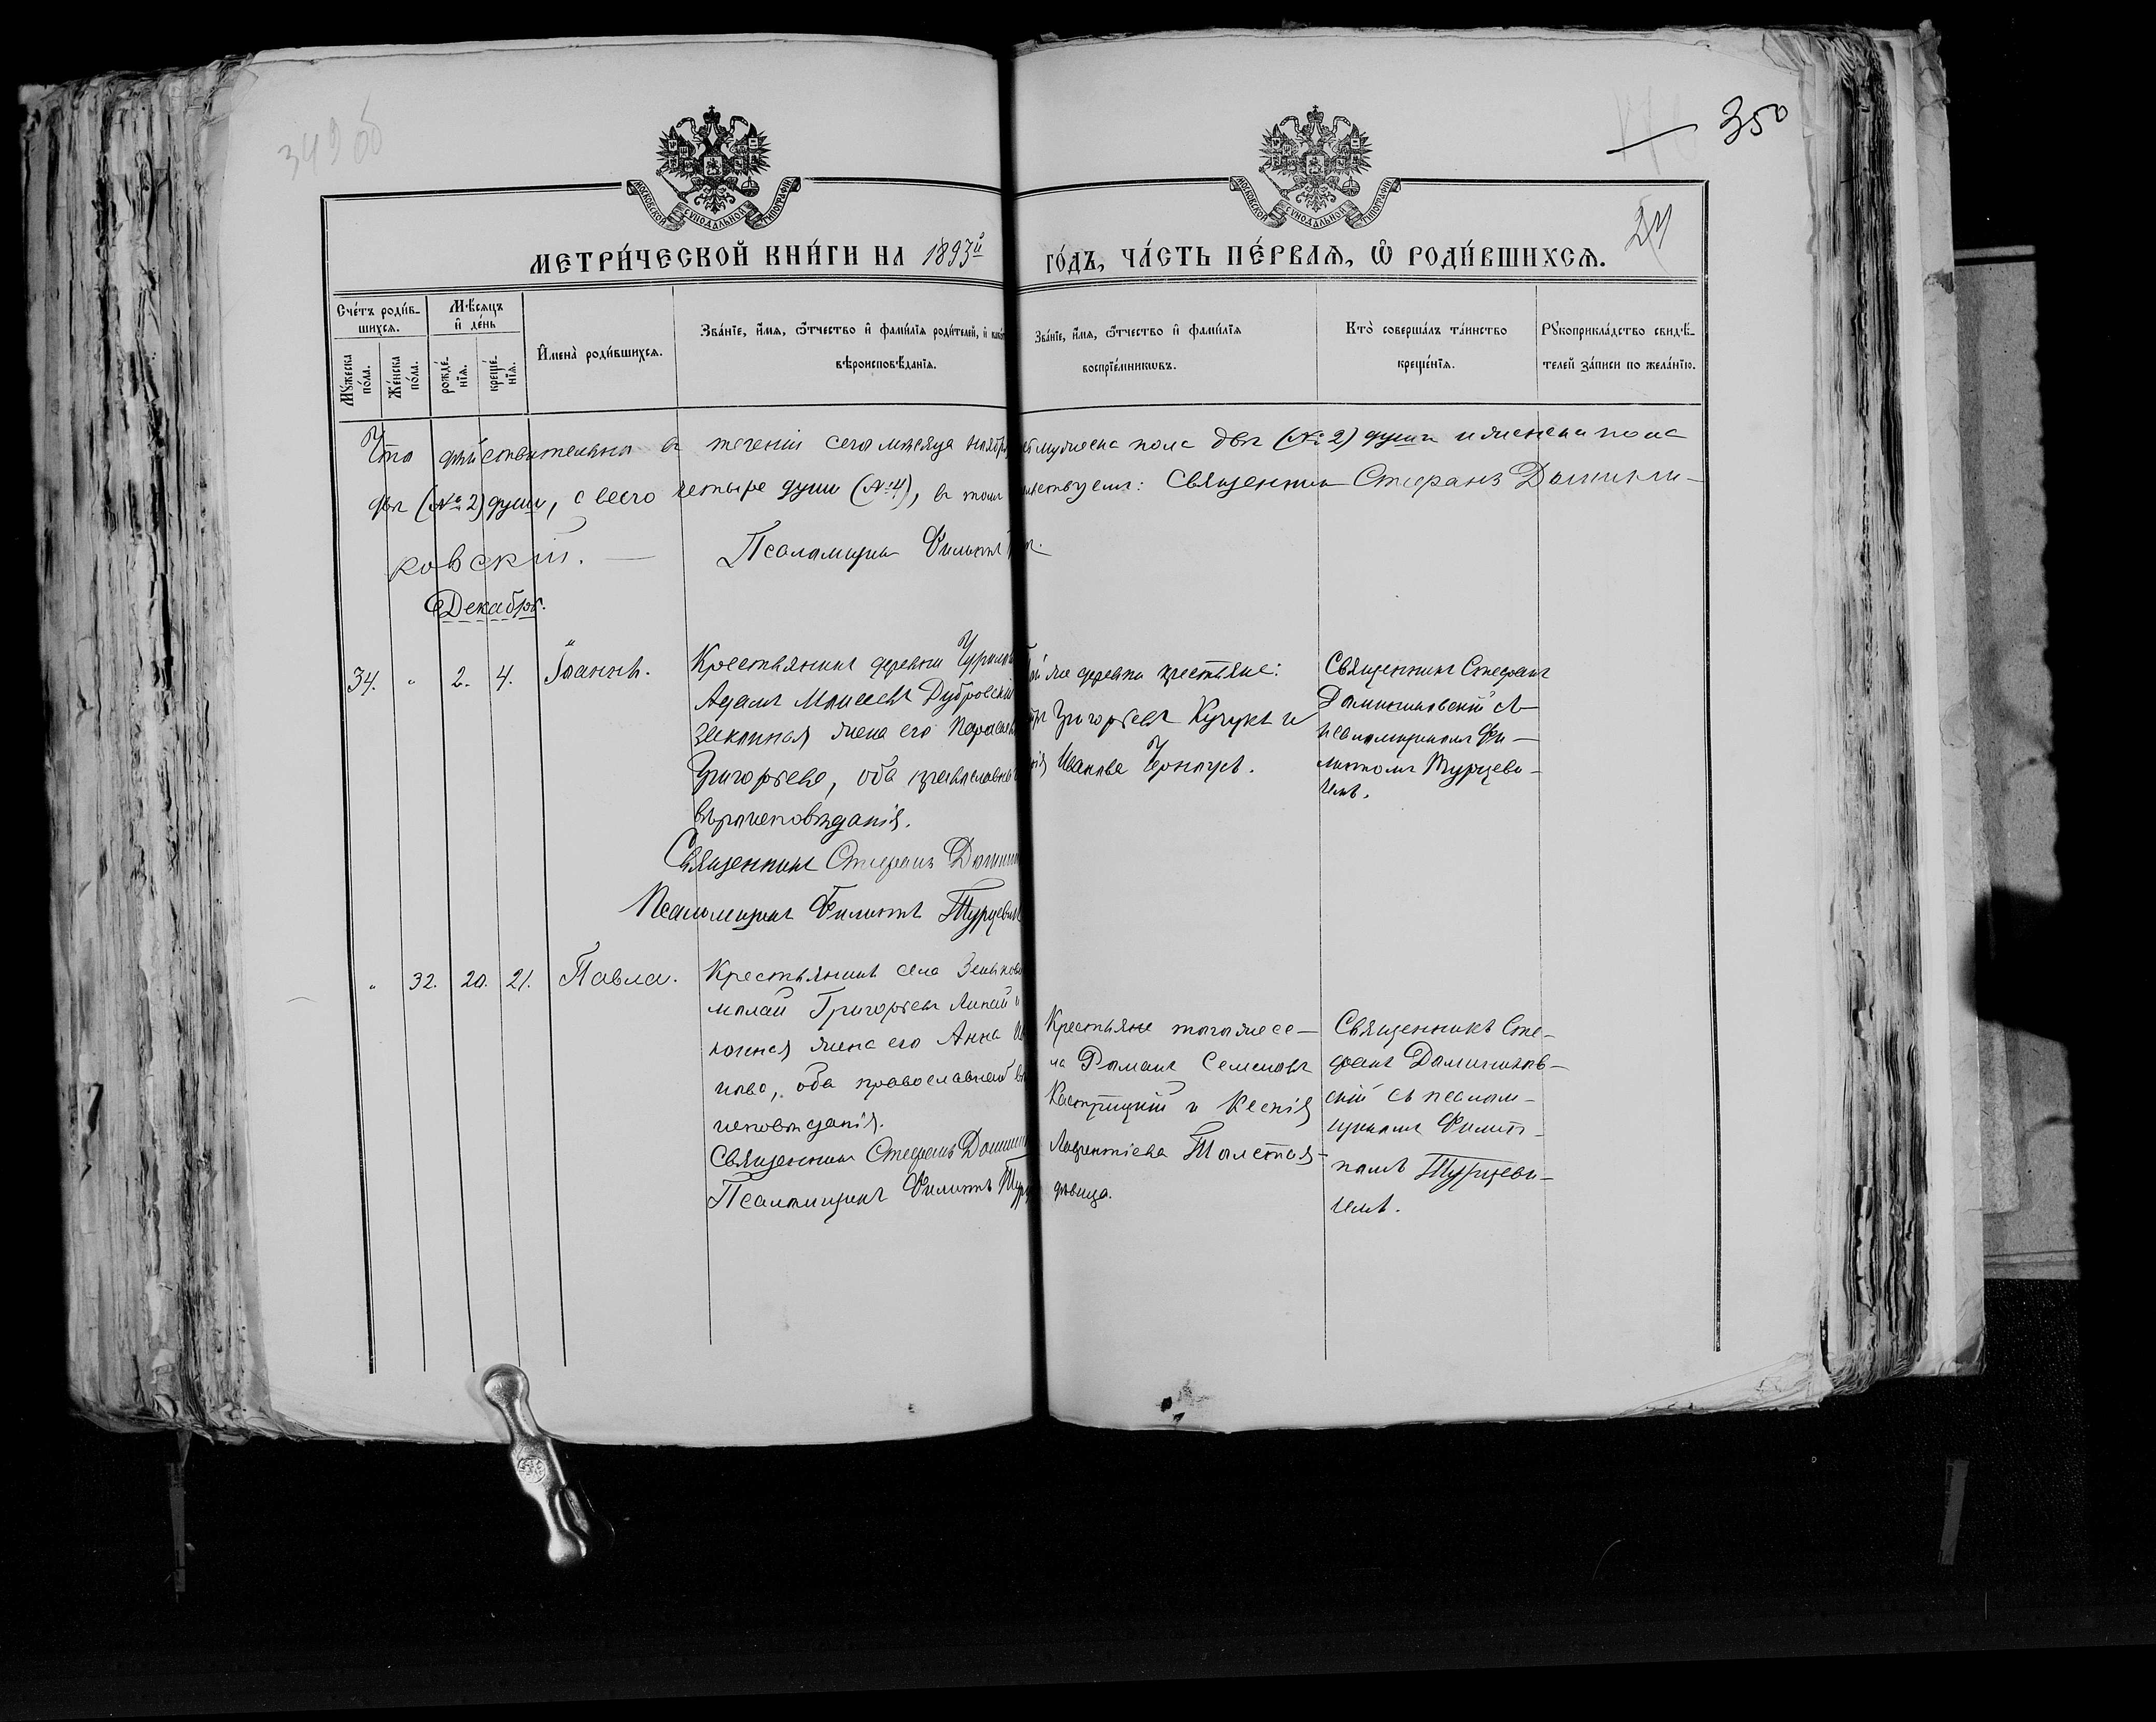 349 об
350
24
МОСКОВСКОЙ СѴНОДАЛЬНОЙ ТИПОГРАФІИ
МОСКОВСКОЙ СѴНОДАЛЬНОЙ ТИПОГРАФІИ
МЕТРИ́ЧЕСКОЙ КНИ́ГИ НА 1893й ГО́ДЪ, ЧА́СТЬ ПЕ́РВАѦ, Ѡ РОДИ́ВШИХСѦ.
Сче́тъ роди́в-
шихсѧ.
Мꙋ́жеска по́ла.
Же́нска по́ла.
Мѣ́сѧцъ и де́нь
рожде́-
нїѧ.
креще́-
нїѧ.
Имена̀ роди́вшихсѧ.
Зва́нїе, и́мѧ, ѻ́тчество и фами́лїѧ роди́телей, и
вѣроисповѣ́данїѧ.
Зва́нїе, и́мѧ, ѻ́тчество и фами́лїѧ
воспрїе́мникѡвъ.
Кто̀ соверша́лъ та́инство
креще́нїѧ.
Рꙋкоприкла́дство свидѣ́-
телей за́писи по жела́нїю.
Что действительно въ теченіи сего месяца Ноября мужеска пола две (№ 2) души и женска пола
две (№ 2) души, а всего четыре души (№ 4), въ томъ свидетельствуемъ: Священникъ Стефанъ Доминиковскій. —
Псаломщикъ Филиппъ
Декабрь.
34. " 2. 4. Іоаннъ.
Крестьянинъ деревни
Адамъ Моисеевъ Дубровскій
законная жена его
Григорьева, оба православнаго
вѣроисповѣданія.
Священникъ Стефанъ
Псаломщикъ Филиппъ Турцевичъ
же деревни крестьяне:
Григорьевъ Кучукъ и
Иванова
Священникъ Стефанъ
Доминиковскій съ
псаломщикомъ Фи-
липпомъ Турцеви-
чемъ.
" 32. 20. 21. Павла.
Крестьянинъ села
Григорьевъ Липай
жена его Анна
нова, оба православнаго вѣ
исповѣданія.
Священникъ Стефанъ
Псаломщикъ Филиппъ
Крестьяне того же се-
ла Романъ Семеновъ
Кастрицкій и Ксенія
Лаврентіева Толстая-
дѣвица.
Священникъ Сте-
фанъ Домиников-
скій съ псалом-
щикомъ Филип-
помъ Турцеви-
чемъ.